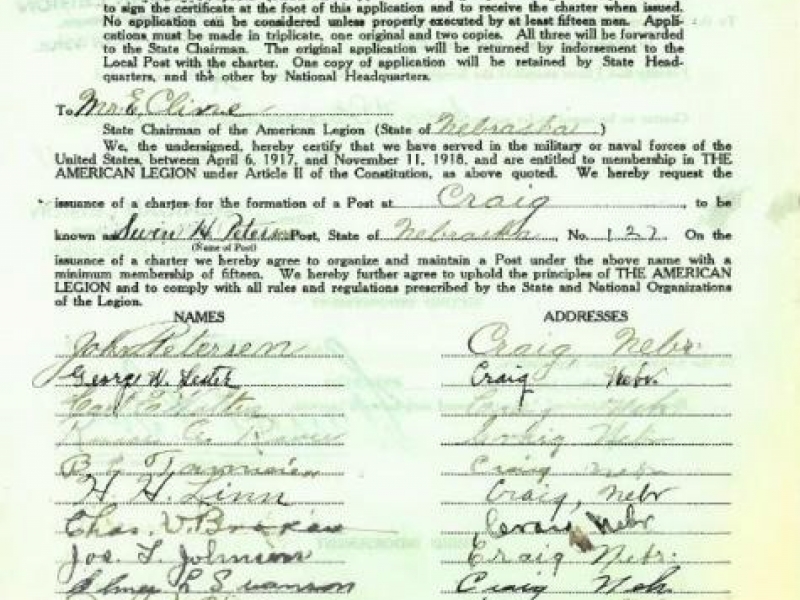 to sign the certificate at the foot of this application and to receive the charter when issued.
No application can be considered unless properly executed by at least fifteen men. Appli-
cations must be made in triplicate, one original and two copies. All three will be forwarded
to the State Chairman. The original application will be returned by indorsement to the
Local Post with the charter. One copy of application will be retained by State Head-
quarters, and the other by National Headquarters.
To Mr. E. Cline
State Chairman of the American Legion (State of Nebraska)
We, the undersigned, hereby certify that we have served in the military or naval forces of the
United States, between April 6, 1917, and November 11, 1918, and are entitled to membership in THE
AMERICAN LEGION under Article II of the Constitution, as above quoted. We hereby request the
issuance of a charter for the formation of a Post at Craig, to be
known as H. Peterson Post, State of Nebraska, No. 127. On the
(Name of Post)
issuance of a charter we hereby agree to organize and maintain a Post under the above name with a
minimum membership of fifteen. We hereby further agree to uphold the principles of THE AMERICAN
LEGION and to comply with all rules and regulations prescribed by the State and National Organizations
of the Legion.
NAMES ADDRESSES
John Petersen Craig, Nebr.
George W. Lester Craig Nebr.
Craig Nebr
Craig Nebr
Craig
H. H. Linn Craig, Nebr
Chas. V. Craig Nebr
Jos. T. Johnson Craig Nebr.
Elmer L Swanson Craig Neb.